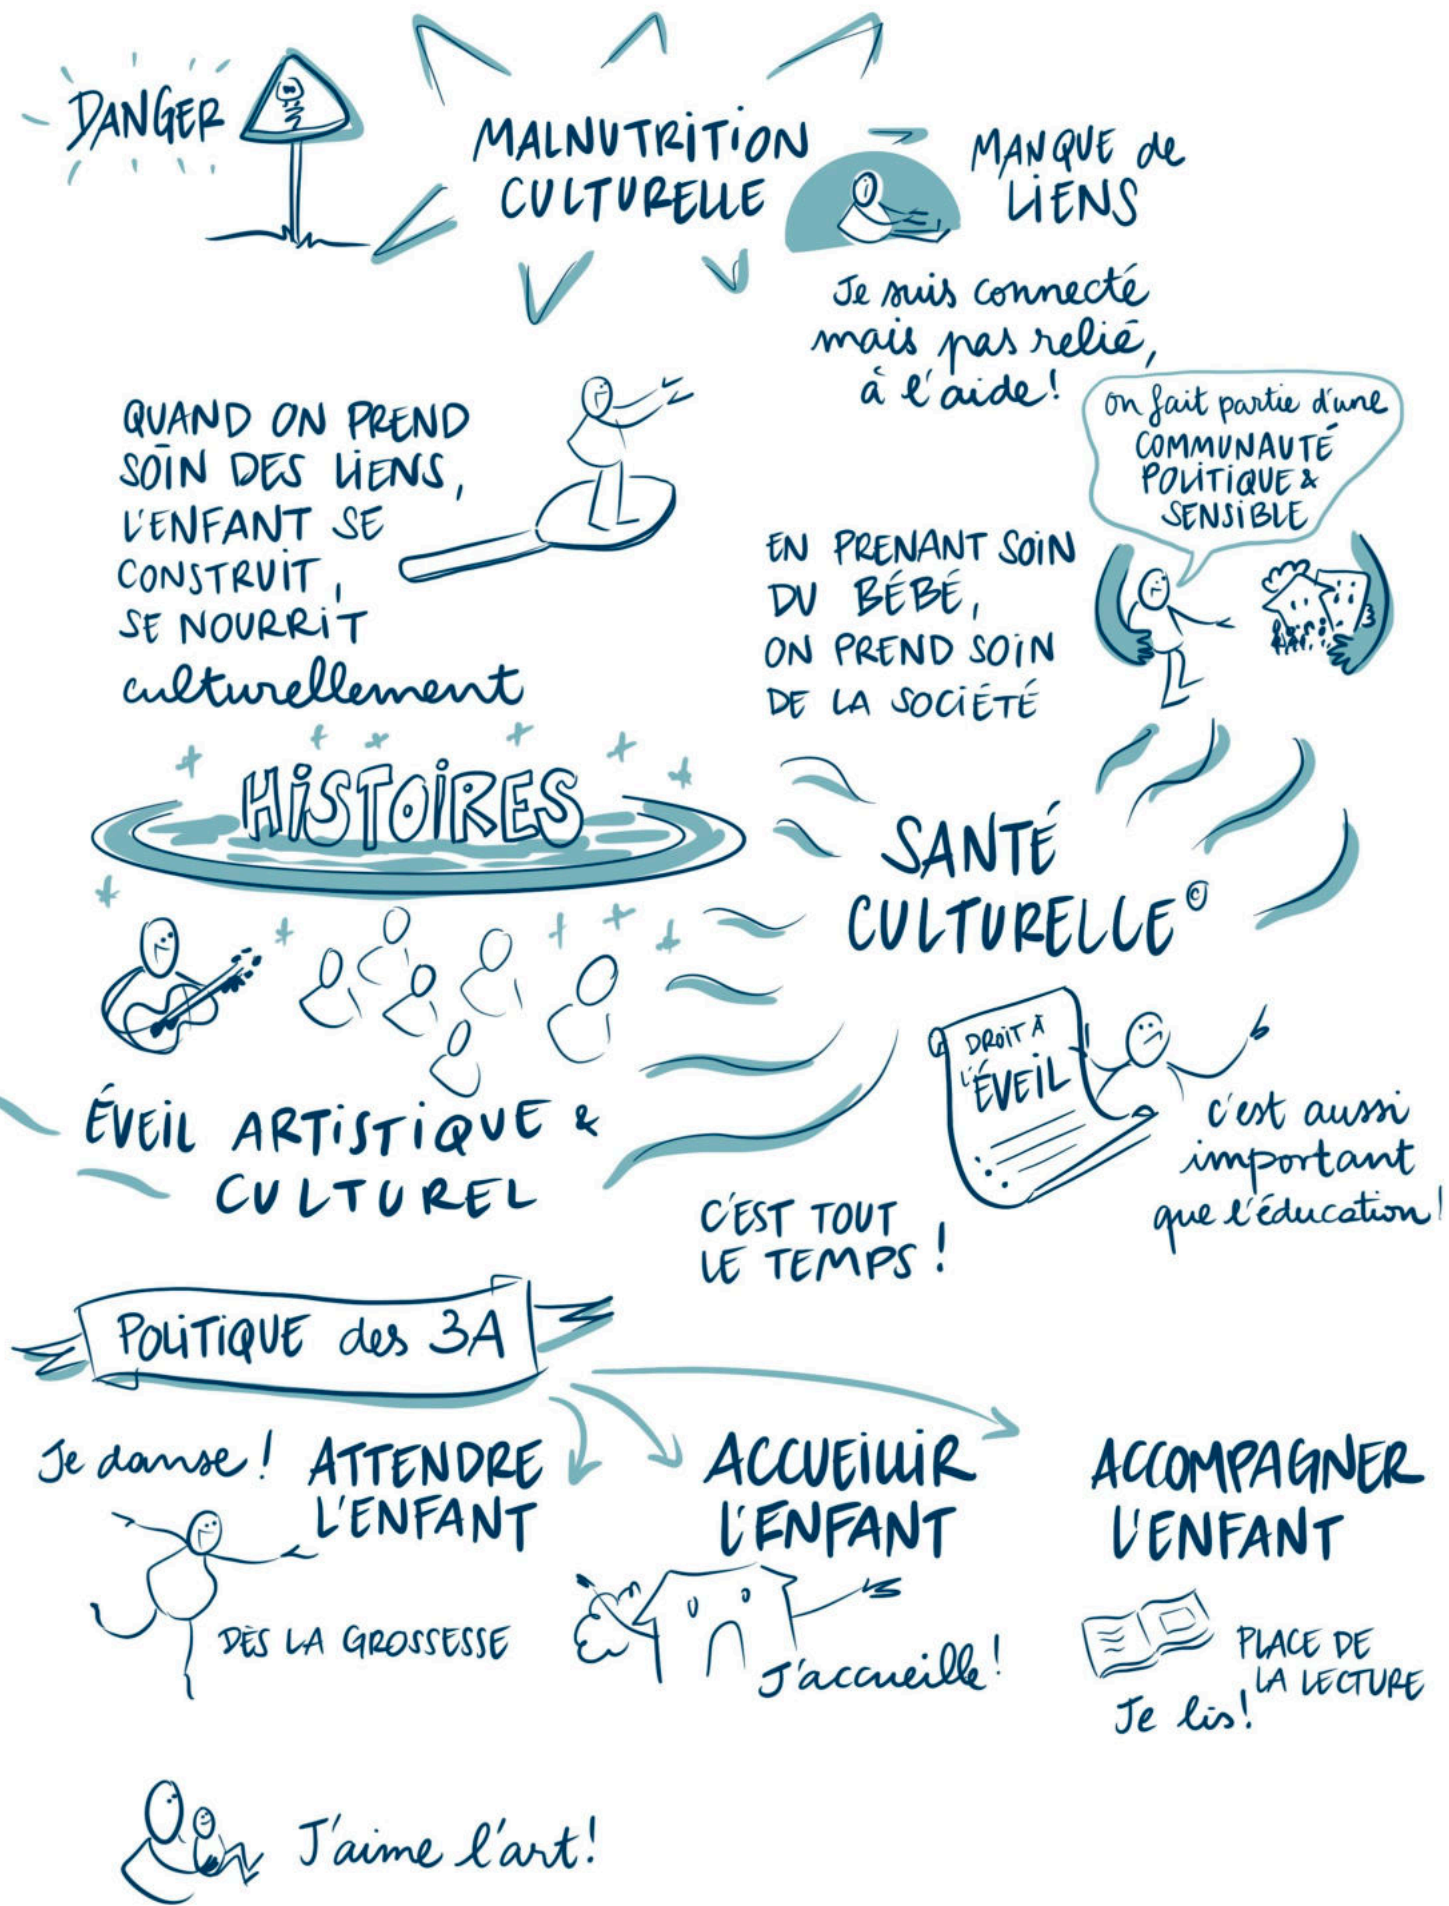 DANGER
MALNUTRITION
CULTURELLE
MANQUE de
LIENS
Je suis connecté
mais pas relié,
à l'aide!
QUAND ON PREND
SOIN DES LIENS,
L'ENFANT SE
CONSTRUIT,
SE NOURRIT
culturellement
on fait partie d'une
COMMUNAUTÉ
POLITIQUE &
SENSIBLE
EN PRENANT SOIN
DU BÉBÉ,
ON PREND SOIN
DE LA SOCIÉTÉ
HISTOIRES
SANTÉ
CULTURELLE©
ÉVEIL ARTISTIQUE &
CULTUREL
DROIT À
L'ÉVEIL
c'est aussi
important
que l'éducation!
C'EST TOUT
LE TEMPS!
POLITIQUE des 3A
Je danse!
ATTENDRE
L'ENFANT
DÈS LA GROSSESSE
ACCUEILLIR
L'ENFANT
J'accueille!
ACCOMPAGNER
L'ENFANT
PLACE DE
LA LECTURE
Je lis!
J'aime l'art!